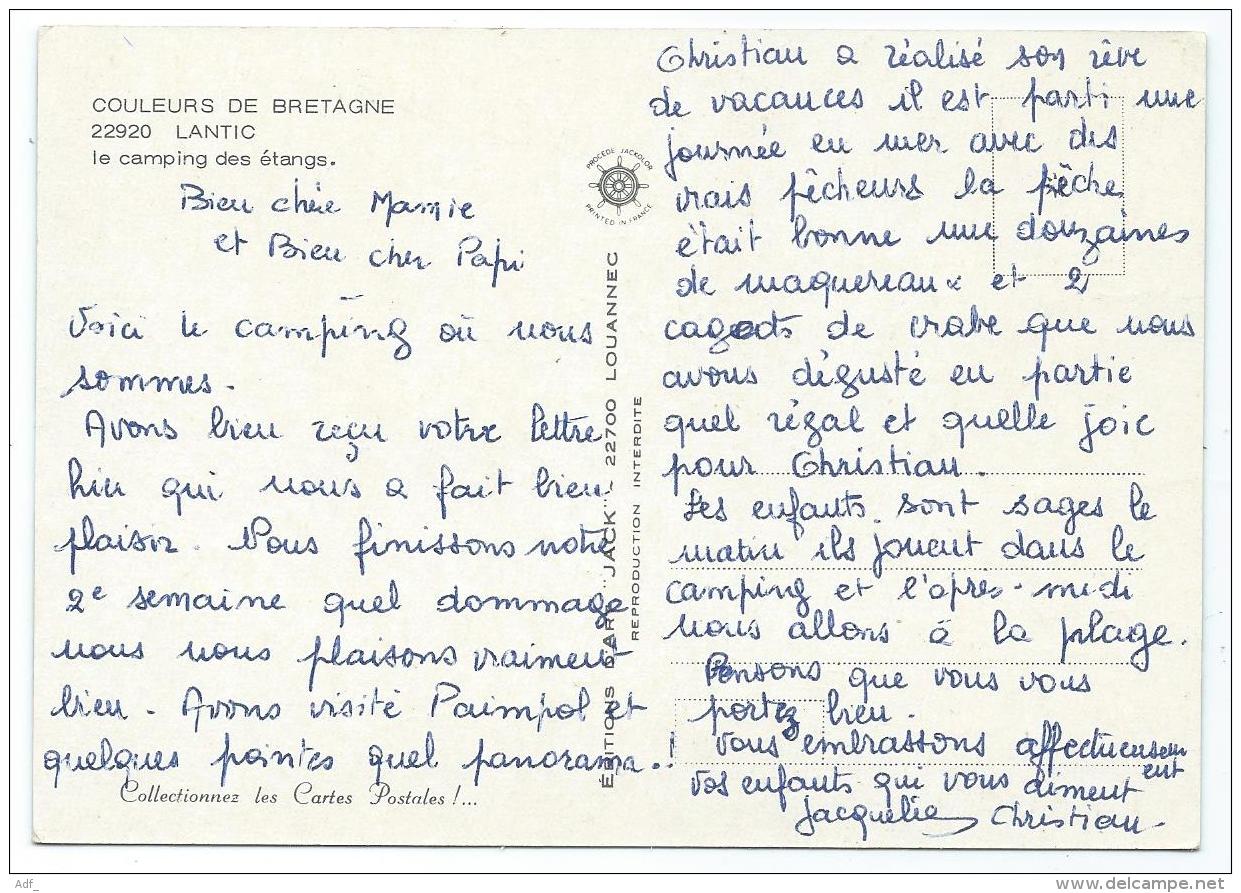 COULEURS DE BRETAGNE
22920 LANTIC
le camping des étangs.
Bien chère Mamie
et Bien cher Papi
Voici le camping où nous
sommes.
Avons bien reçu votre lettre
hier qui nous a fait bien
plaisir. Nous finissons notre
2e semaine quel dommage
nous nous plaisons vraiment
bien - Avons visité Paimpol et
quelques pointes quel panorama.!
Collectionnez les Cartes Postales !...
PROCEDE JACKOLOR
PRINTED IN FRANCE
ÉDITIONS D'ART "JACK" - 22700 LOUANNEC
REPRODUCTION INTERDITE
Christian a réalisé son rêve
de vacances il est parti une
journée en mer avec des
vrais pêcheurs la pêche
était bonne une douzaines
de maquereaux et 2
cageots de crabe que nous
avons dégusté en partie
quel régal et quelle joie
pour Christian.
Les enfants sont sages le
matin ils jouent dans le
camping et l'après-midi
nous allons à la plage.
Pensons que vous vous
portez bien.
Vous embrassons affectueusem
ent
Vos enfants qui vous aiment
Jacqueline Christian-
Adf_
delcampe.net